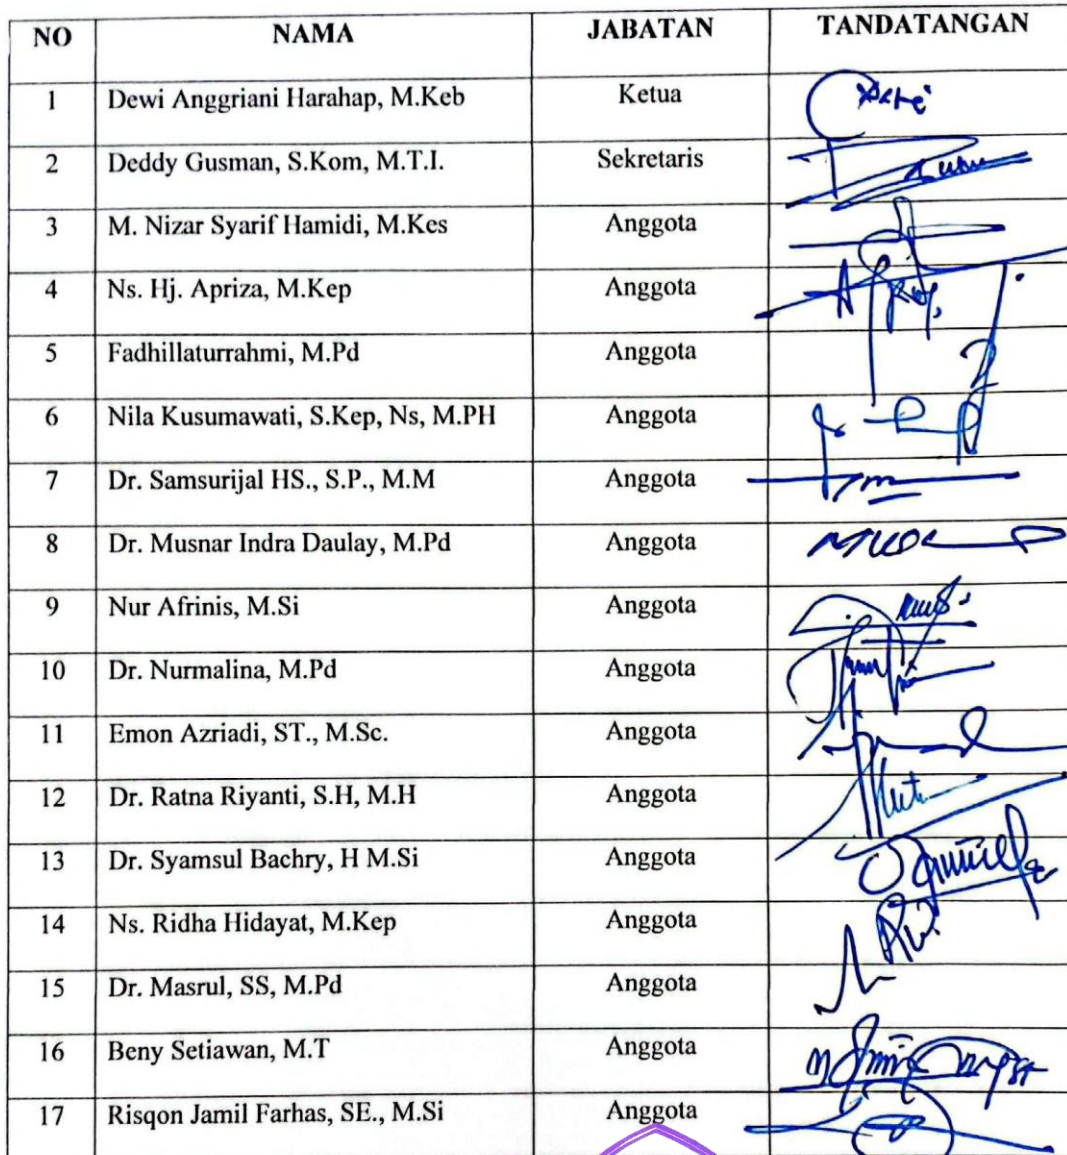 NO NAMA JABATAN TANDATANGAN
1 Dewi Anggriani Harahap, M.Keb Ketua
2 Deddy Gusman, S.Kom, M.T.I. Sekretaris
3 M. Nizar Syarif Hamidi, M.Kes Anggota
4 Ns. Hj. Apriza, M.Kep Anggota
5 Fadhillaturrahmi, M.Pd Anggota
6 Nila Kusumawati, S.Kep, Ns, M.PH Anggota
7 Dr. Samsurijal HS., S.P., M.M Anggota
8 Dr. Musnar Indra Daulay, M.Pd Anggota
9 Nur Afrinis, M.Si Anggota
10 Dr. Nurmalina, M.Pd Anggota
11 Emon Azriadi, ST., M.Sc. Anggota
12 Dr. Ratna Riyanti, S.H, M.H Anggota
13 Dr. Syamsul Bachry, H M.Si Anggota
14 Ns. Ridha Hidayat, M.Kep Anggota
15 Dr. Masrul, SS, M.Pd Anggota
16 Beny Setiawan, M.T Anggota
17 Risqon Jamil Farhas, SE., M.Si Anggota